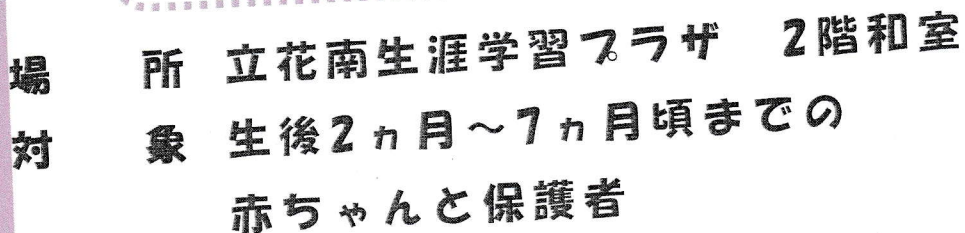 場　　所 立花南生涯学習プラザ　2階和室
対　　象 生後2ヵ月～7ヵ月頃までの
赤ちゃんと保護者